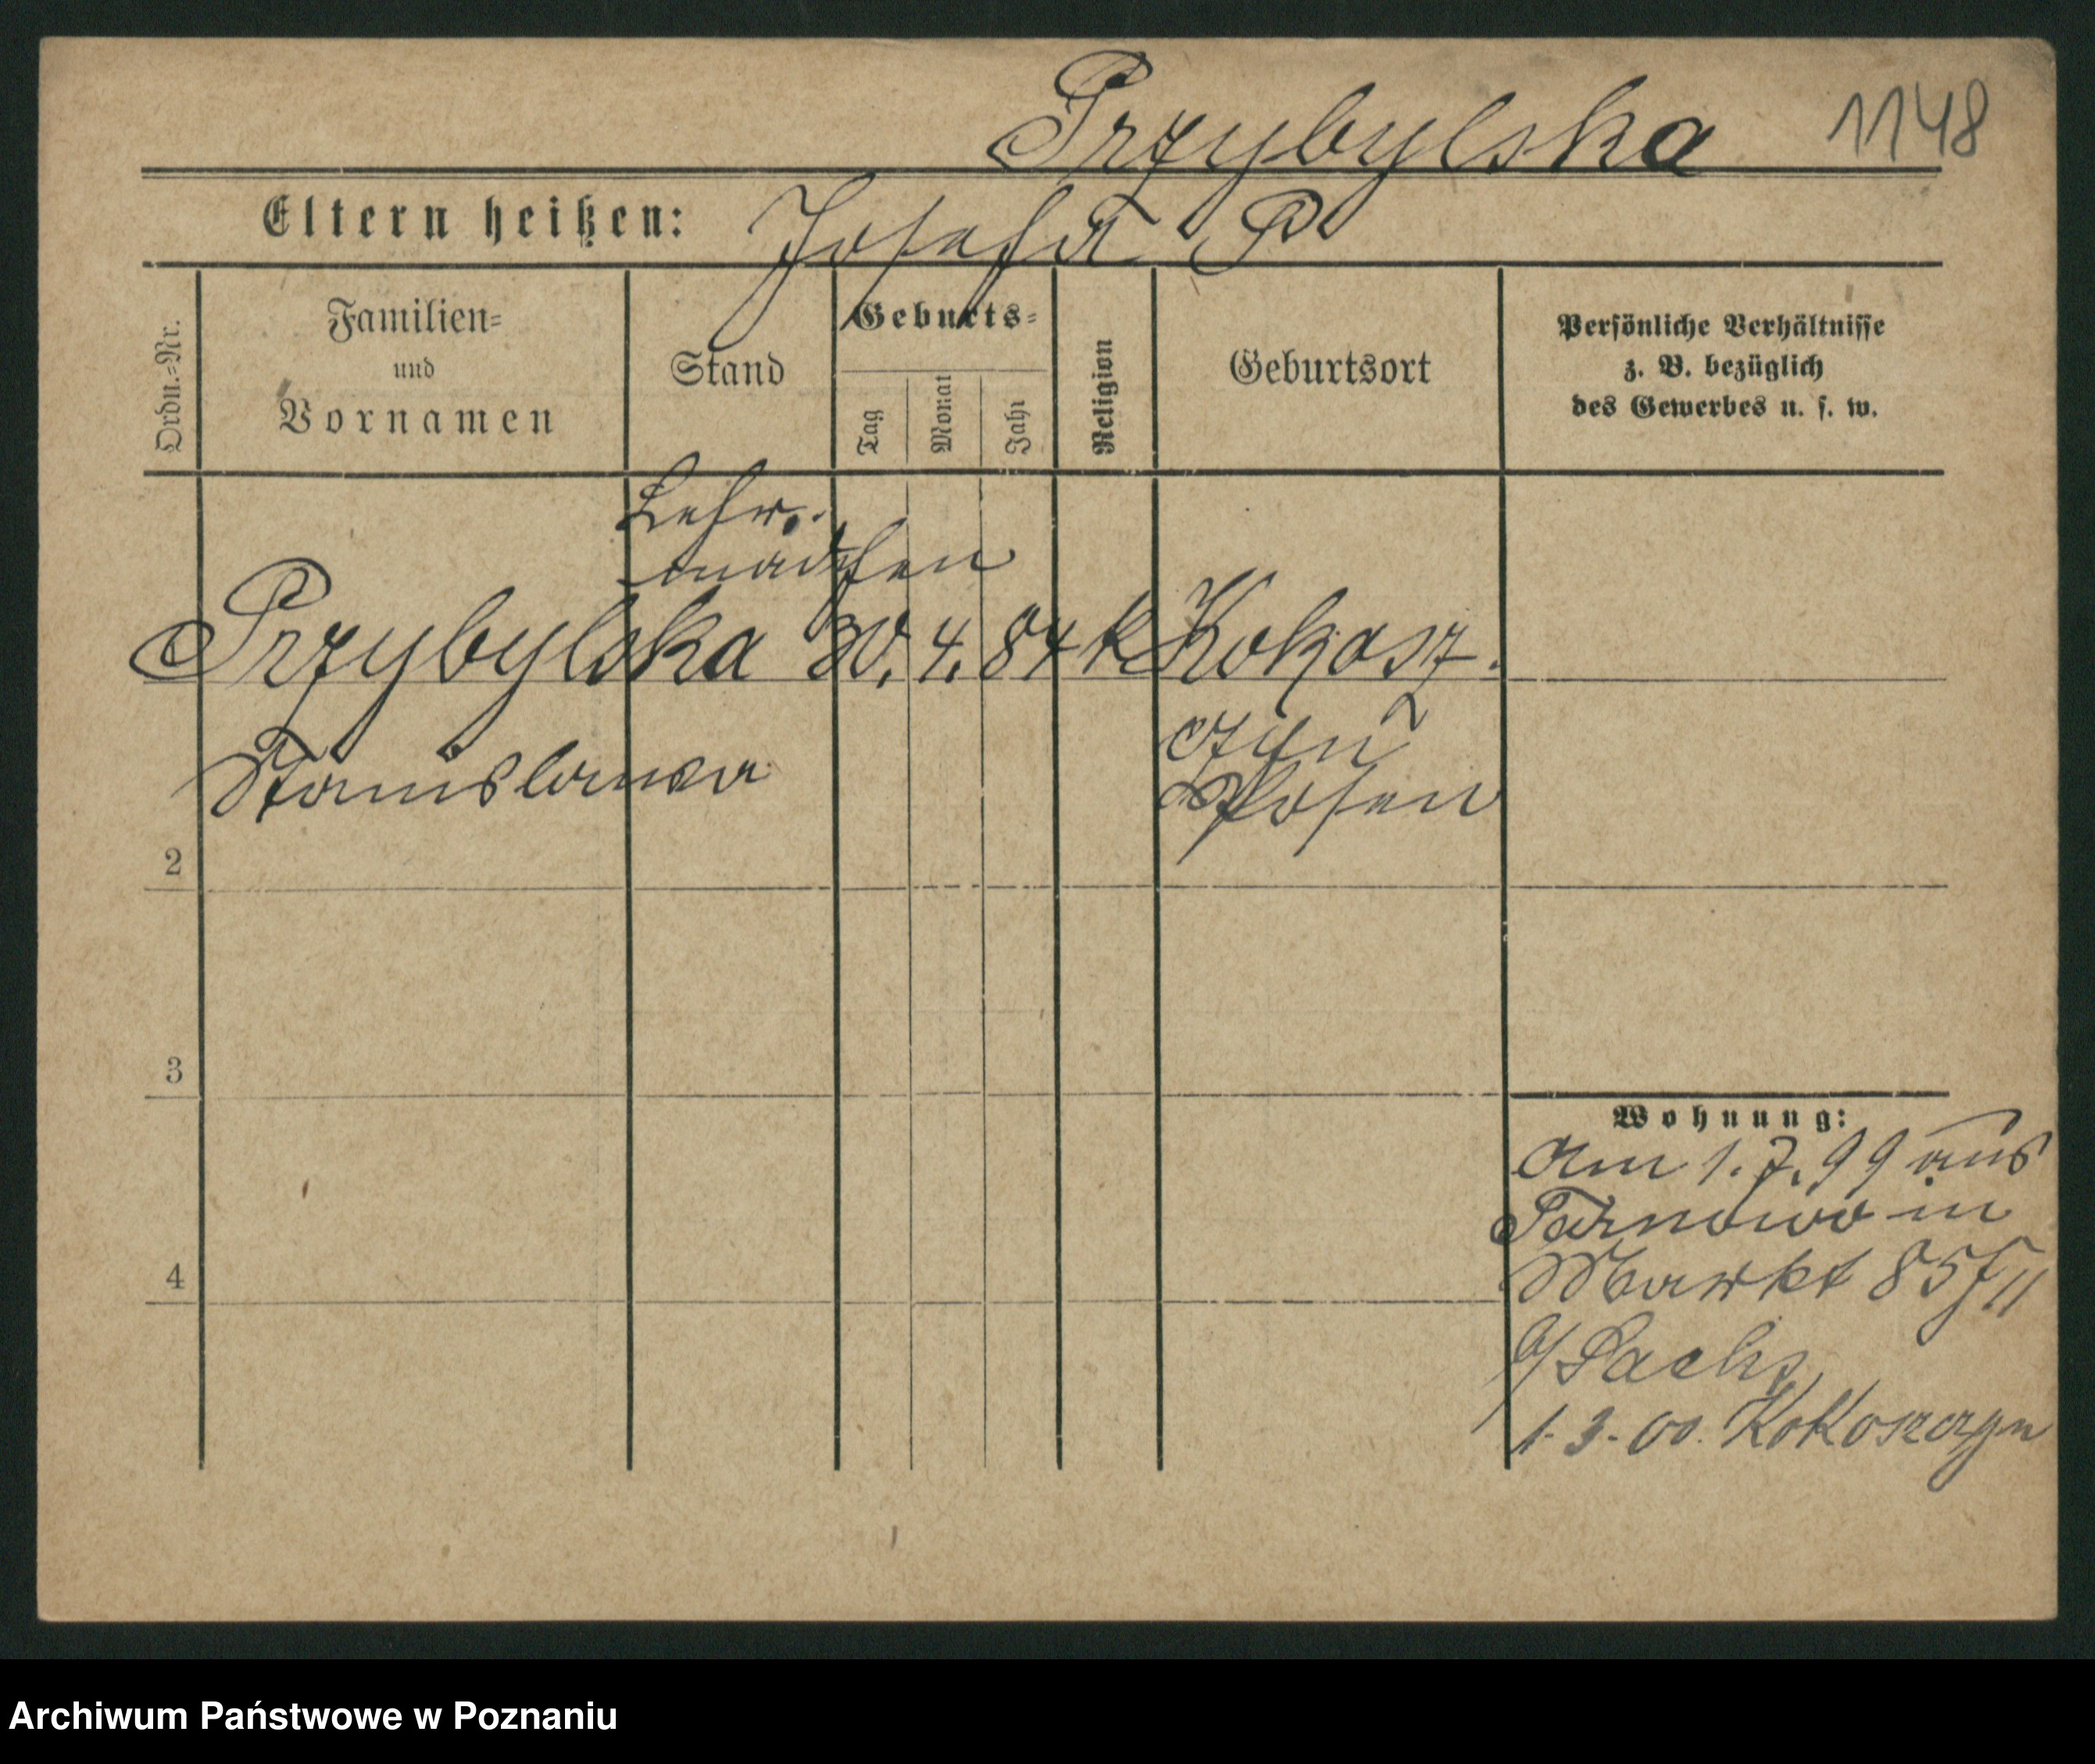 Przybylska 1148
Eltern heißen: Josefa P
Ordn.=Nr.
Familien=
und
Vornamen
Stand
Geburts=
Tag
Monat
Jahr
Religion
Geburtsort
Persönliche Verhältnisse
z. B. bezüglich
des Gewerbes u. s. w.
Lehr.
mädchen
Przybylska 30. 4. 84 k Kokosz.
czyn
Stanislawa
Posen
2
3
4
Wohnung:
Am 1. 7. 99 aus
Tarnowo in
Markt 85 II
b/ Sachs
1-3-00. Kokoszczyn
Archiwum Państwowe w Poznaniu